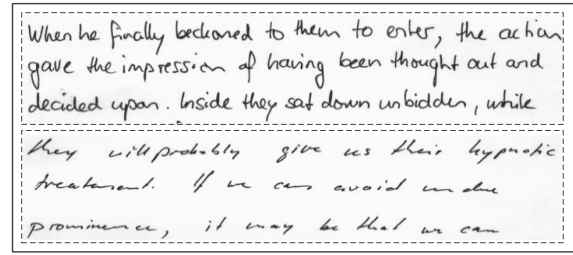 When he finally beckoned to them to enter, the action
gave the impression of having been thought out and
decided upon. Inside they sat down unbidden, while
they will probably give us their hypnotic
treatment. If we can avoid undue
prominence, it may be that we can